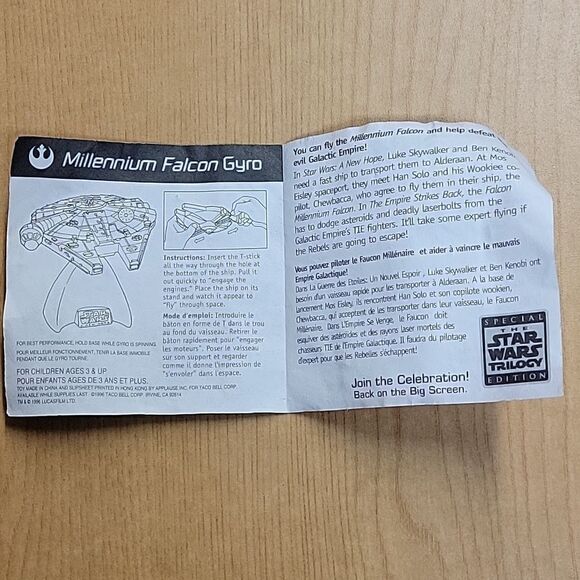 Millennium Falcon Gyro
STAR WARS
Instructions: Insert the T-stick
all the way through the hole at
the bottom of the ship. Pull it
out quickly to "engage the
engines." Place the ship on its
stand and watch it appear to
"fly" through space.
Mode d'emploi: Introduire le
bâton en forme T dans le trou
au fond du vaisseau. Retirer le
bâton rapidement pour "engager
les moteurs". Poser le vaisseau
sur son support et regarder
comme il donne l'impression de
"s'envoler" dans l'espace.
FOR BEST PERFORMANCE, HOLD BASE WHILE GYRO IS SPINNING.
POUR MEILLEUR FONCTIONNEMENT, TENIR LA BASE IMMOBILE
PENDANT QUE LE GYRO TOURNE.
FOR CHILDREN AGES 3 & UP
POUR ENFANTS AGES DE 3 ANS ET PLUS.
TOY MADE IN CHINA AND SLIPSHEET PRINTED IN HONG KONG BY APPLAUSE INC. FOR TACO BELL CORP.
AVAILABLE WHILE SUPPLIES LAST. ©1996 TACO BELL CORP. IRVINE, CA 92614
TM & © 1996 LUCASFILM LTD.
You can fly the Millennium Falcon and help defeat
evil Galactic Empire!
In Star Wars: A New Hope, Luke Skywalker and Ben Kenobi
need a fast ship to transport them to Alderaan. At Mos
Eisley spaceport, they meet Han Solo and his Wookiee co-
pilot, Chewbacca, who agree to fly them in their ship, the
Millennium Falcon. In The Empire Strikes Back, the Falcon
has to dodge asteroids and deadly laserbolts from the
Galactic Empire's TIE fighters. It'll take some expert flying if
the Rebels are going to escape!
Vous pouvez piloter le Faucon Millénaire et aider à vaincre le mauvais
Empire Galactique!
Dans La Guerre des Étoiles: Un Nouvel Espoir, Luke Skywalker et Ben Kenobi ont
besoin d'un vaisseau rapide pour les transporter à Alderaan. A la base de
lancement Mos Eisley, ils rencontrent Han Solo et son copilote wookien,
Chewbacca, qui acceptent de les transporter dans leur vaisseau, le Faucon
Millénaire. Dans L'Empire Se Venge, le Faucon doit
esquiver des astéroïdes et des rayons laser mortels des
chasseurs TIE de l'Empire Galactique. Il faudra du pilotage
d'expert pour que les Rebelles s'échappent!
Join the Celebration!
Back on the Big Screen.
SPECIAL
THE
STAR
WARS
TRILOGY
EDITION